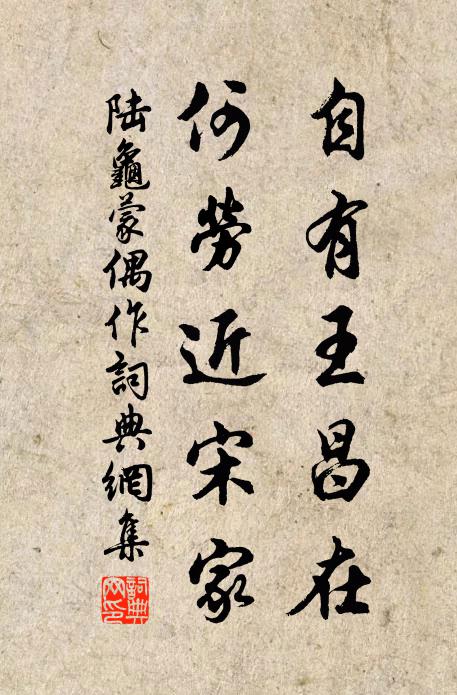 自有王昌在
何勞近宋家
陸龜蒙偶作詞典網集
詞典網印